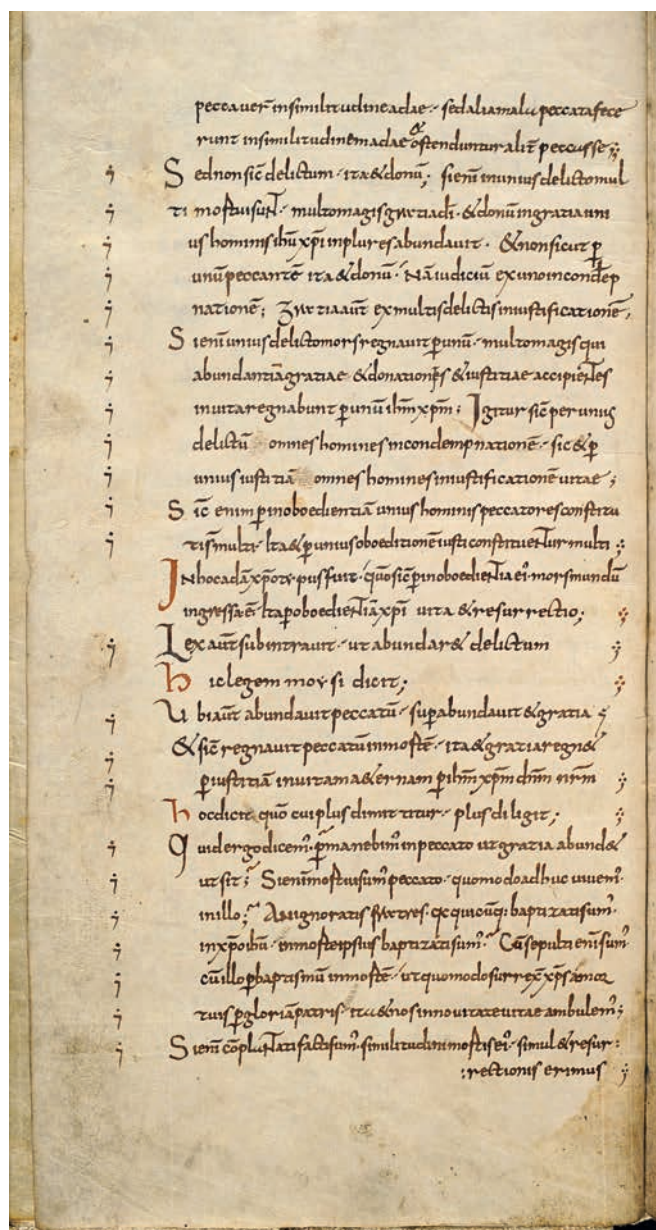 peccauer̄ insimilitudineadae · sedaliamala peccatafece
runt insimilitudinemadae & ostendunturalit̄ peccasse ;
Sednonsic̄delictum · ita&donū; sienī inuniusdelictomul
ti mortuisunt · multomagisgratiadī · &donūingratiauni
us hominisih̄ux̄pī inpluresabundauit · &nonsicut p̱
unūpeccantē ita&donū · Nāiudiciū exunoincondēp
nationē ; Gratiaaūt exmultisdelictisiniustificationē ;
Sienīuniusdelictomorsregnauitp̱unū · multomagisqui
abundantiāgratiae &donationes &iustitiae accipientes
inuitaregnabunt p̱unū ih̄mx̄pm̄ ; Igitur sic̄perunius
delictū omneshominesincondempnationē · sic&p̱
uniusiustitiā omneshominesiniustificationēuitae ;
Sic̄ enimp̱inoboedientiā uniushominispeccatoresconstitu
tis̄multi · Ita&p̱uniusoboeditionēiusticonstituenturmulti ;
Inhocadāx̄potypusfuit · quōsic̄p̱inoboedientiāei' morsmundū
ingressaē · Itap̱oboedientiāx̄pī uita &resurrectio ;
Lexaūtsubintrauit · utabundar& delictum
hiclegem moysi dicit ;
Ubiaūt abundauitpeccatū · sup̱abundauit&gratia
&sic̄regnauitpeccatūinmortē · ita&gratiaregn&
p̱iustitiā inuitamaeternam p̱ih̄m x̄pm̄ dn̄m nr̄m
hocdicit quō cuiplusdimittitur · plusdiligit ;
Quidergodicem' p̱manebim' inpeccato utgratia abund&
utsit ; Sienimmortuisum' peccato · quomodoadhuc uiuem'
inillo ; Anignoratis fratres · quicūq; baptizatisum'
inx̄poih̄u · inmorteipsius baptizatisum' Cūsepulti enī sum'
cūillop̱baptismū inmortē · utquomodosurrex̄ x̄psamor
tuis p̱gloriāpatris · ita&nosinnouitateuitae ambulem' ;
Sienī cōplantatifactisum' similitudinimortisei' · simul&resur:
:rectionis erimus